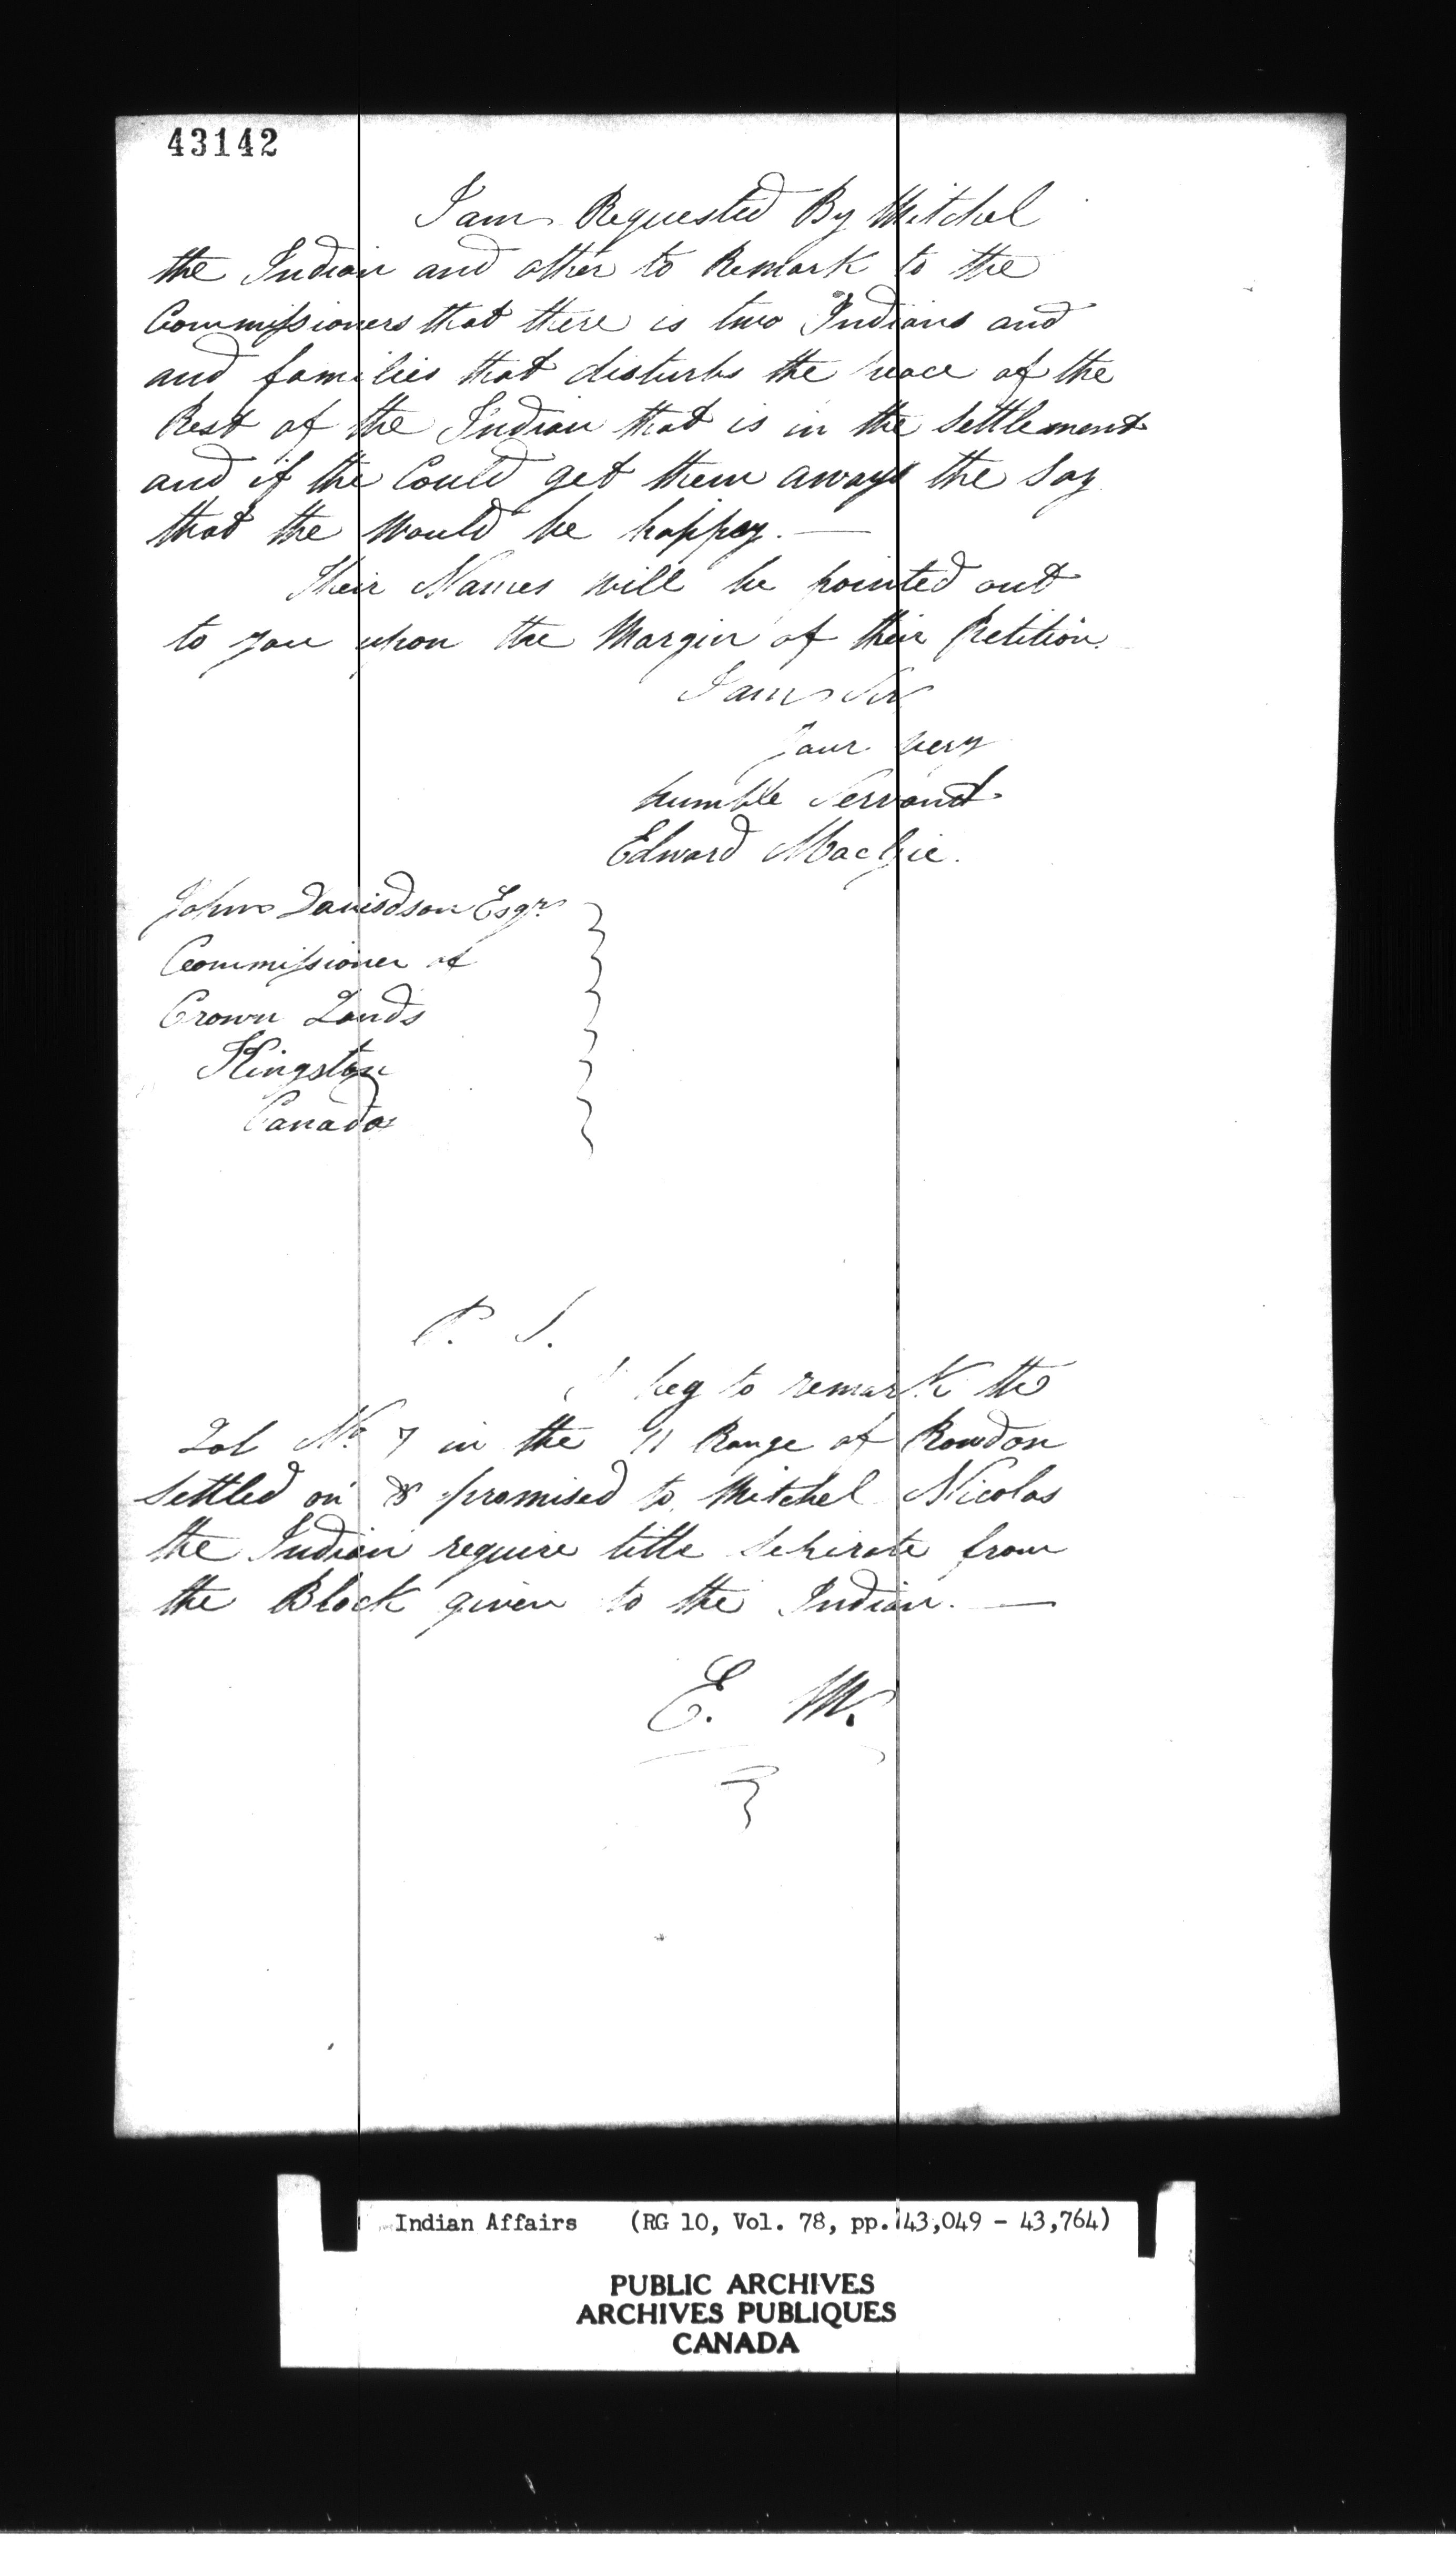 43142
I am Requested By Mitchel
the Indian and other to Remark to the
Commissioners that there is two Indians and
and families that disturbs the peace of the
Rest of the Indian that is in the settlement
and if the Could get them aways the say
that the Would be happey. —
Their Names will be pointed out
to you upon the Margin of their Petition.
I am Sir
your very
humble Servant
Edward MacGie.
John Davisdson Esqr.
Commissioner of
Crown Lands
Kingston
Canada
P. S.
I beg to remark the
Lot No. 7 in the 11 Range of Rawdon
settled on & promised to Mitchel Nicolas
the Indian require title seperate from
the Block given to the Indian. —
E. M.
Indian Affairs (RG 10, Vol. 78, pp. 43,049 - 43,764)
PUBLIC ARCHIVES
ARCHIVES PUBLIQUES
CANADA